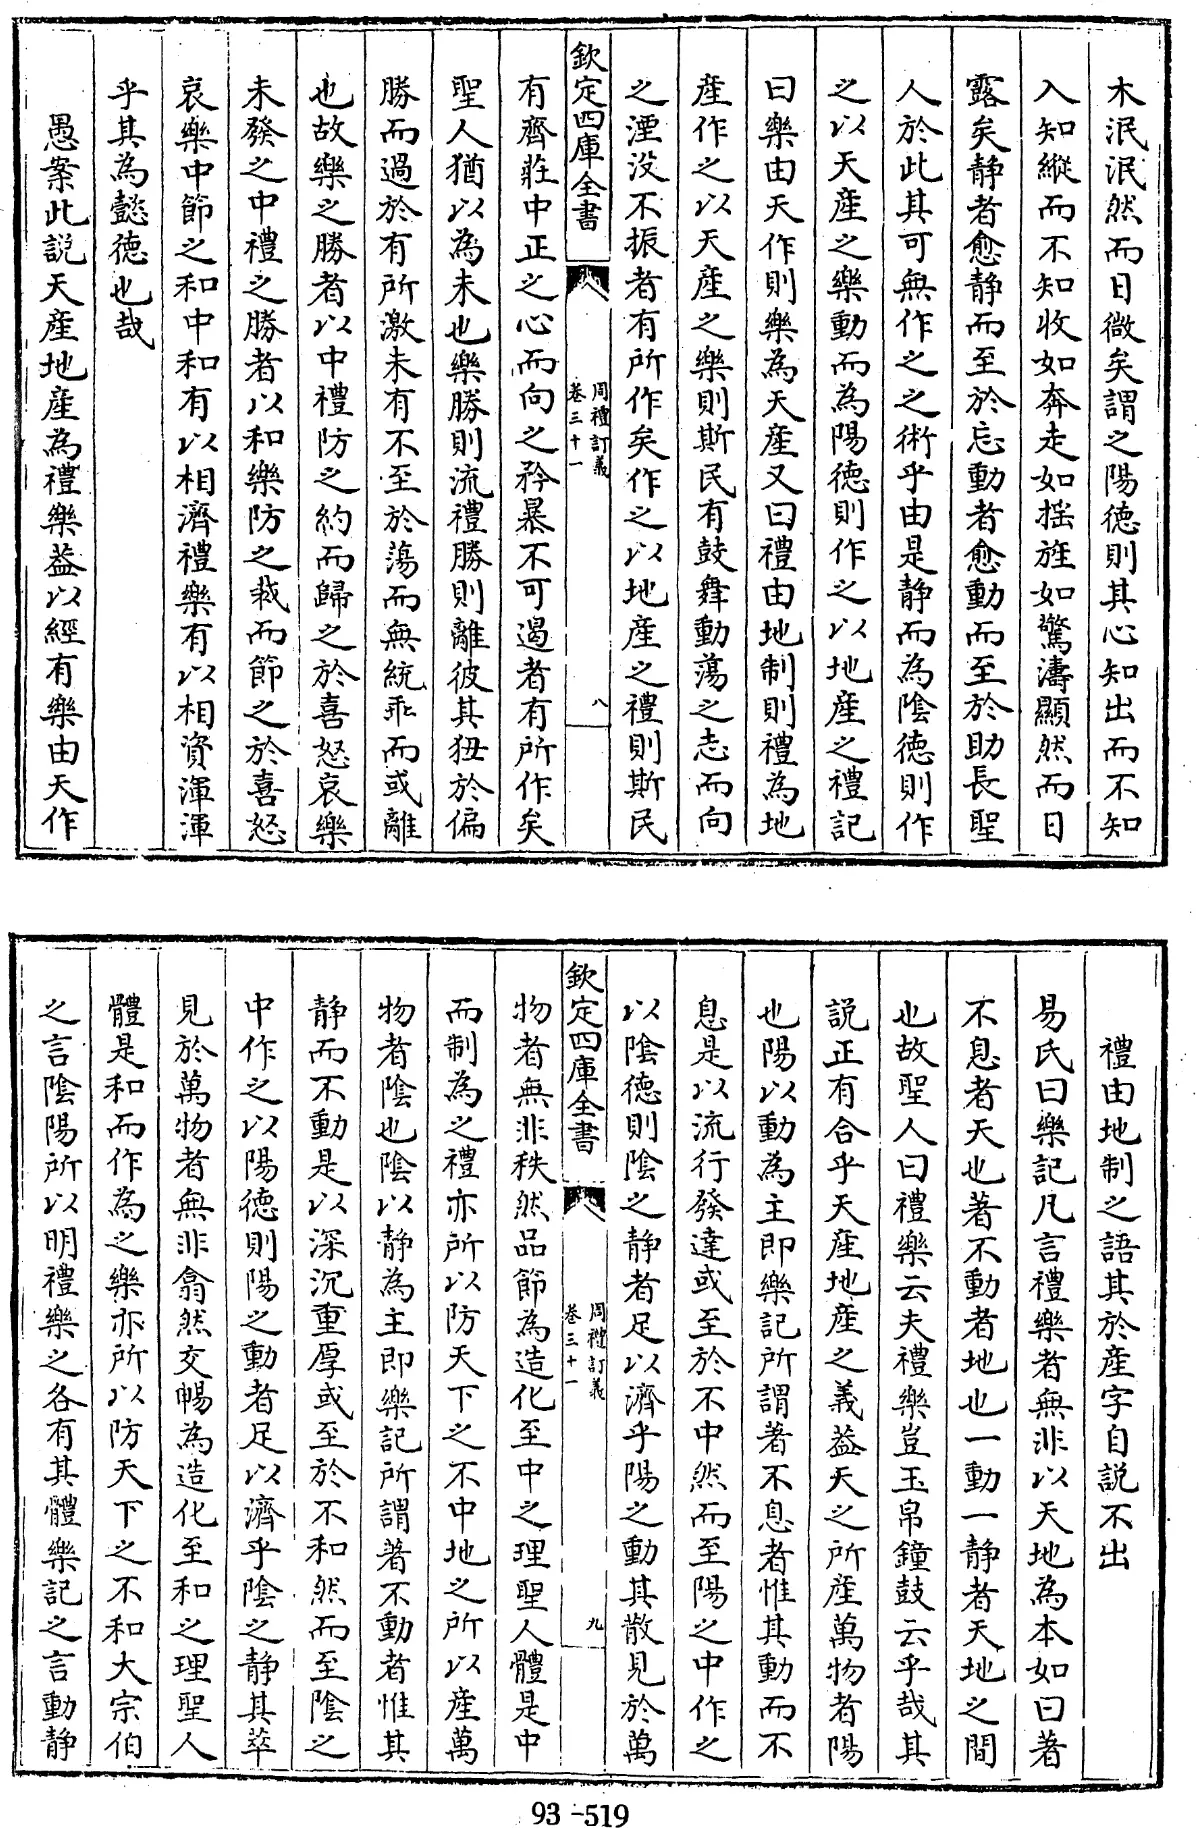 木泯泯然而日微矣謂之陽徳則其心知出而不知
入知縱而不知收如奔走如揺旌如驚濤顯然而日
露矣静者愈静而至於忘動者愈動而至於助長聖
人於此其可無作之之術乎由是静而為隂徳則作
之以天産之樂動而為陽徳則作之以地産之禮記
曰樂由天作則樂為天産又曰禮由地制則禮為地
産作之以天産之樂則斯民有鼓舞動蕩之志而向
之湮没不振者有所作矣作之以地産之禮則斯民
欽定四庫全書
周禮訂義
卷三十一
八
有齊莊中正之心而向之矜暴不可遏者有所作矣
聖人猶以為未也樂勝則流禮勝則離彼其狃於偏
勝而過於有所激未有不至於蕩而無統乖而或離
也故樂之勝者以中禮防之約而歸之於喜怒哀樂
未發之中禮之勝者以和樂防之裁而節之於喜怒
哀樂中節之和中和有以相濟禮樂有以相資渾渾
乎其為懿徳也哉
愚案此説天産地産為禮樂葢以經有樂由天作
禮由地制之語其於産字自説不出
易氏曰樂記凡言禮樂者無非以天地為本如曰著
不息者天也著不動者地也一動一静者天地之間
也故聖人曰禮樂云夫禮樂豈玉帛鐘鼓云乎哉其
説正有合乎天産地産之義葢天之所産萬物者陽
也陽以動為主即樂記所謂著不息者惟其動而不
息是以流行發達或至於不中然而至陽之中作之
以隂徳則隂之静者足以濟乎陽之動其散見於萬
欽定四庫全書
周禮訂義
卷三十一
九
物者無非秩然品節為造化至中之理聖人體是中
而制為之禮亦所以防天下之不中地之所以産萬
物者隂也隂以静為主即樂記所謂著不動者惟其
静而不動是以深沉重厚或至於不和然而至隂之
中作之以陽徳則陽之動者足以濟乎隂之静其萃
見於萬物者無非翕然交暢為造化至和之理聖人
體是和而作為之樂亦所以防天下之不和大宗伯
之言隂陽所以明禮樂之各有其體樂記之言動静
93-519